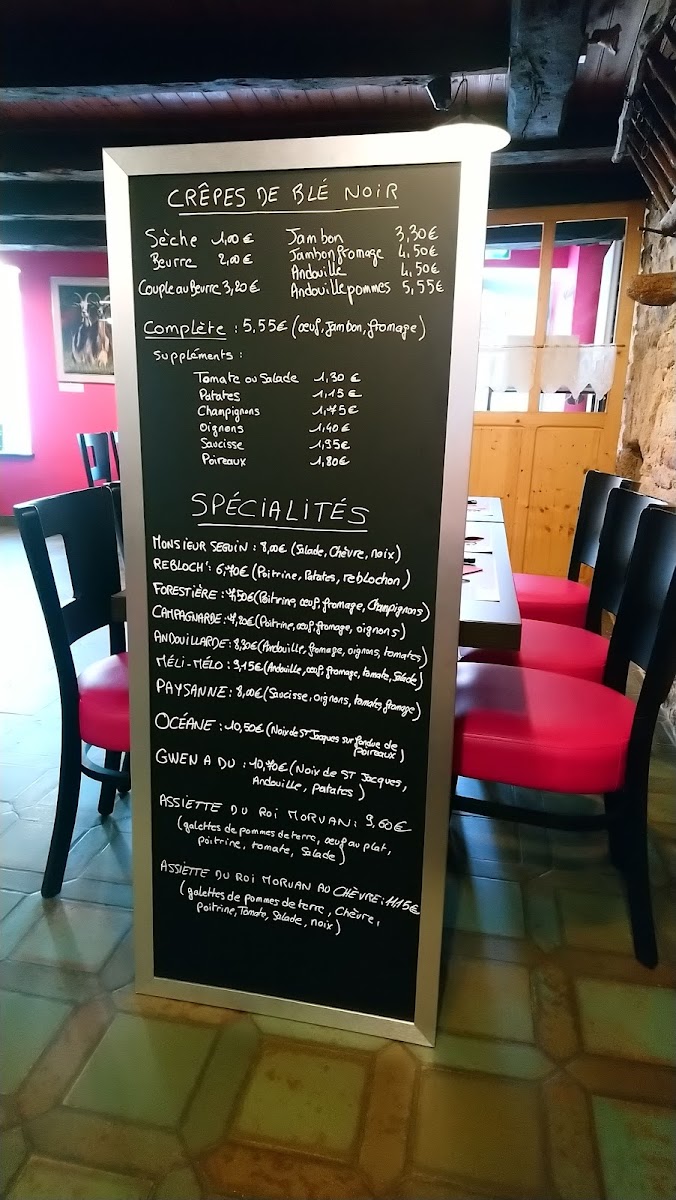 CRÊPES DE BLÉ NOIR
Sèche 1,00 €
Beurre 2,00 €
Couple au Beurre 3,20 €
Jambon 3,30 €
Jambon fromage 4,50 €
Andouille 4,50 €
Andouille pommes 5,55 €
Complète : 5,55 € (œuf, jambon, fromage)
Suppléments :
Tomate ou Salade 1,30 €
Patates 1,15 €
Champignons 1,75 €
Oignons 1,40 €
Saucisse 1,95 €
Poireaux 1,80 €
SPÉCIALITÉS
MONSIEUR SEGUIN : 8,00 € (Salade, Chèvre, noix)
REBLOCH' : 6,70 € (Poitrine, Patates, reblochon)
FORESTIÈRE : 7,50 € (Poitrine, œuf, fromage, Champignons)
CAMPAGNARDE : 7,20 € (Poitrine, œuf, fromage, oignons)
ANDOUILLARDE : 8,30 € (Andouille, fromage, oignons, tomates)
MÉLI-MÉLO : 9,15 € (Andouille, œuf, fromage, tomate, Salade)
PAYSANNE : 8,00 € (Saucisse, oignons, tomates, fromage)
OCÉANE : 10,50 € (Noix de St Jacques sur fondue de
poireaux)
GWEN A DU : 10,70 € (Noix de ST Jacques,
Andouille, patates)
ASSIETTE DU ROI MORVAN : 9,60 €
(galettes de pommes de terre, œuf au plat,
poitrine, tomate, Salade)
ASSIETTE DU ROI MORVAN AU CHÈVRE : 11,15 €
(galettes de pommes de terre, Chèvre,
poitrine, Tomate, Salade, noix)